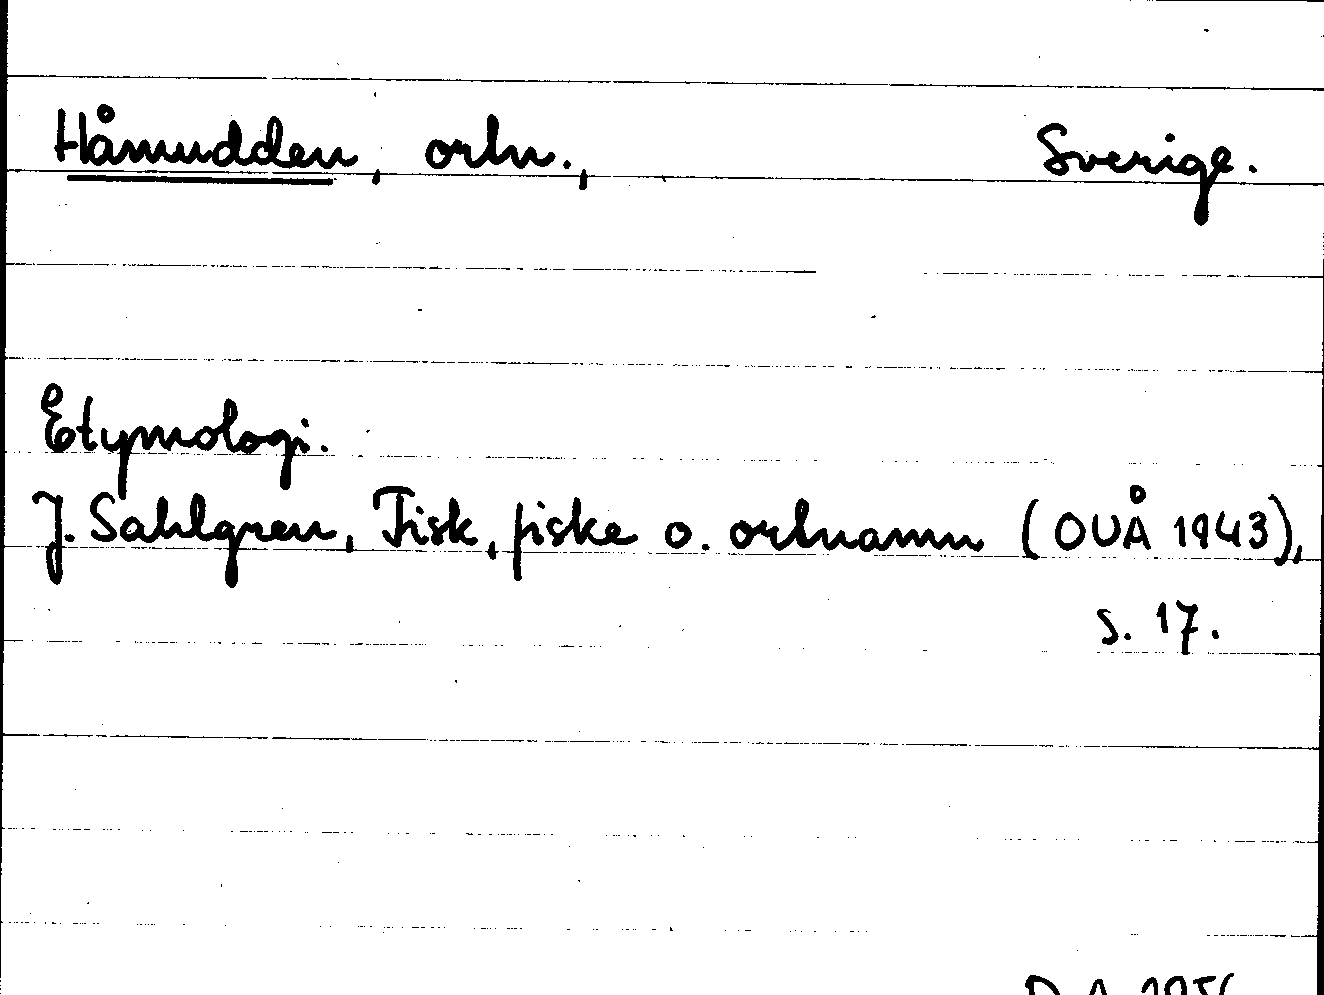 Håmudden, ortn., Sverige.
Etymologi.
J. Sahlgren, Fisk, fiske o. ortnamn (OUÅ 1943),
s. 17.